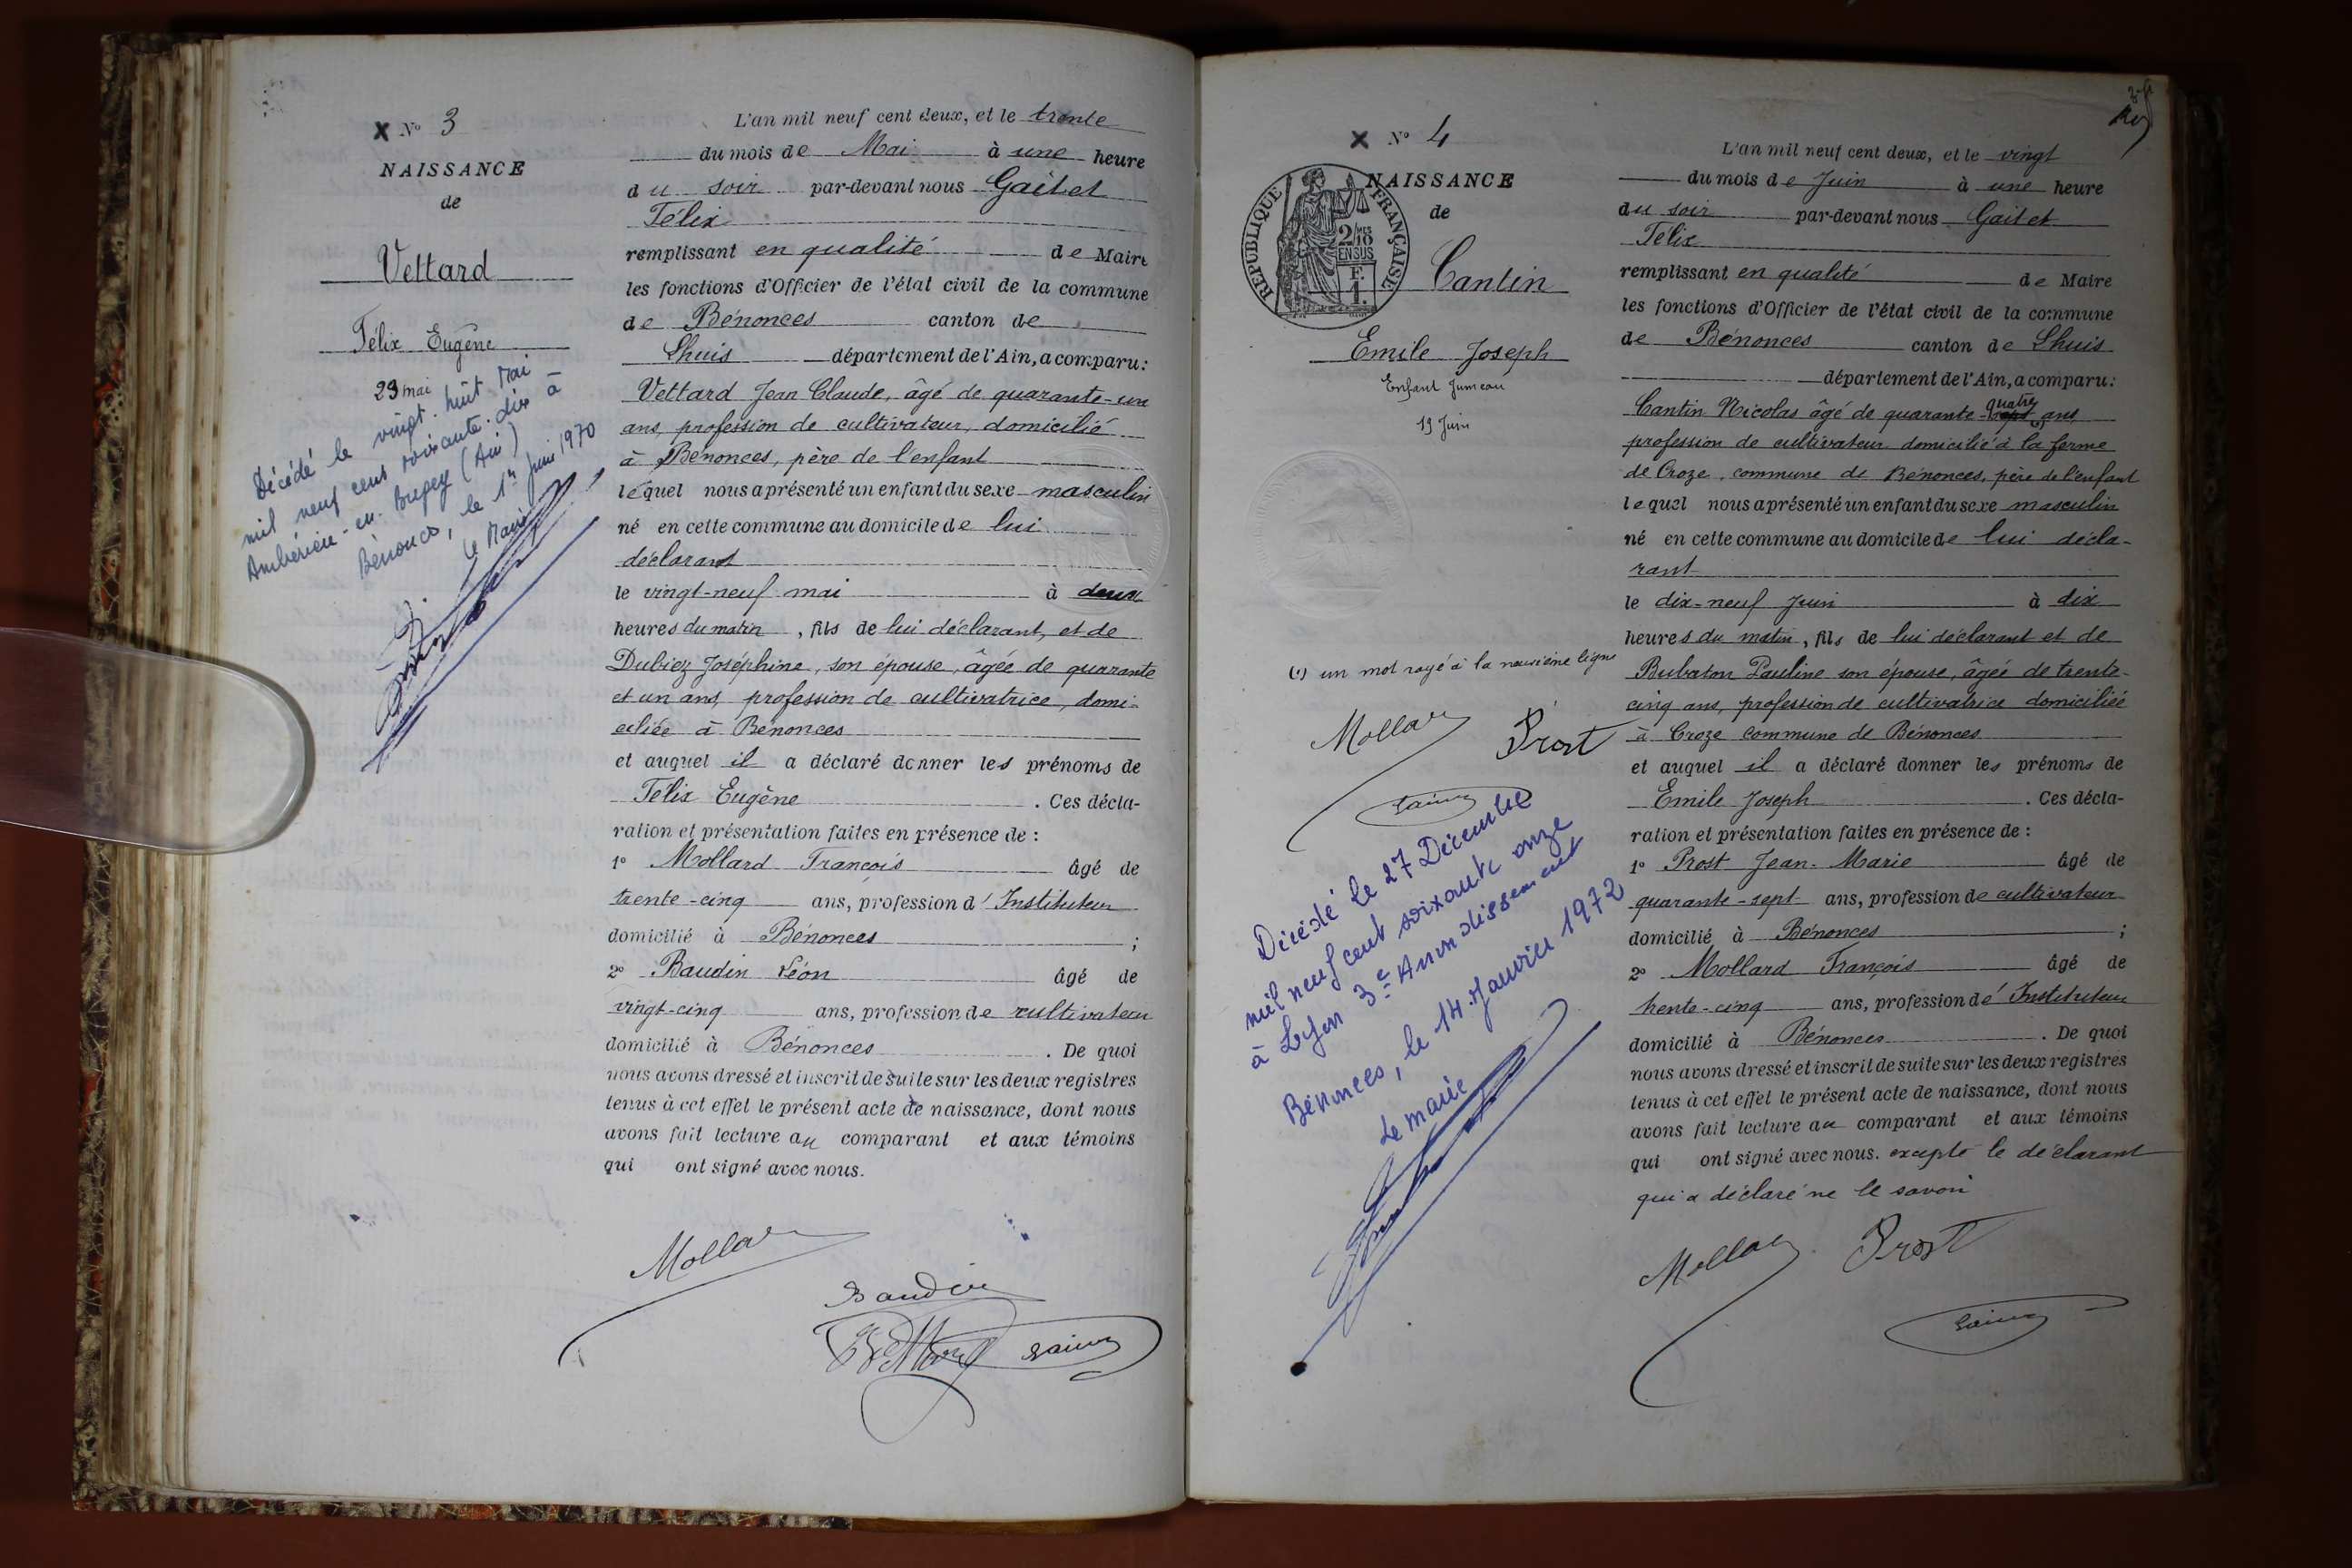 X N° 3
NAISSANCE
de
Vettard
Félix Eugène
29 mai
Décédé le vingt-huit Mai
mil neuf cent soixante-dix à
Ambérieu-en-Bugey (Ain)
Bénonces, le 1er Juin 1970
Le Maire
L'an mil neuf cent deux, et le trente
du mois de Mai à une heure
du soir par-devant nous Gaitet
Félix
remplissant en qualité de Maire
les fonctions d'Officier de l'état civil de la commune
de Bénonces canton de
Lhuis département de l'Ain, a comparu:
Vettard Jean Claude, âgé de quarante-un
ans, profession de cultivateur, domicilié
à Bénonces, père de l'enfant
lequel nous a présenté un enfant du sexe masculin
né en cette commune au domicile de lui
déclarant
le vingt-neuf mai à deux
heures du matin, fils de lui déclarant, et de
Dubiez Joséphine, son épouse, âgée de quarante
et un ans, profession de cultivatrice, domi-
ciliée à Bénonces
et auquel il a déclaré donner les prénoms de
Félix Eugène. Ces décla-
ration et présentation faites en présence de :
1° Mollard François âgé de
trente-cinq ans, profession d'Instituteur
domicilié à Bénonces ;
2° Baudin Léon âgé de
vingt-cinq ans, profession de cultivateur
domicilié à Bénonces. De quoi
nous avons dressé et inscrit de suite sur les deux registres
tenus à cet effet le présent acte de naissance, dont nous
avons fait lecture au comparant et aux témoins
qui ont signé avec nous.
Mollard
Baudin
Vettard Gaitet
X N° 4
NAISSANCE
de
RÉPUBLIQUE FRANÇAISE
2/10MES
EN SUS
F.
1.
Cantin
Emile Joseph
Enfant Jumeau
19 Juin
(1) un mot rayé à la neuvième ligne
Mollard Prost
Gaitet
Décédé le 27 Décembre
mil neuf cent soixante onze
à Lyon 3e Arrondissement
Bénonces, le 14 Janvier 1972
Le maire
L'an mil neuf cent deux, et le vingt
du mois de Juin à une heure
du soir par-devant nous Gaitet
Félix
remplissant en qualité de Maire
les fonctions d'Officier de l'état civil de la commune
de Bénonces canton de Lhuis
département de l'Ain, a comparu:
Cantin Nicolas âgé de quarante-quatre ans,
profession de cultivateur domicilié à la ferme
de Croze, commune de Bénonces, père de l'enfant
lequel nous a présenté un enfant du sexe masculin
né en cette commune au domicile de lui décla-
rant
le dix-neuf Juin à dix
heures du matin, fils de lui déclarant et de
Bubaton Pauline son épouse, âgée de trente-
cinq ans, profession de cultivatrice domiciliée
à Croze commune de Bénonces
et auquel il a déclaré donner les prénoms de
Emile Joseph. Ces décla-
ration et présentation faites en présence de :
1° Prost Jean-Marie âgé de
quarante-sept ans, profession de cultivateur
domicilié à Bénonces ;
2° Mollard François âgé de
trente-cinq ans, profession d'Instituteur
domicilié à Bénonces. De quoi
nous avons dressé et inscrit de suite sur les deux registres
tenus à cet effet le présent acte de naissance, dont nous
avons fait lecture au comparant et aux témoins
qui ont signé avec nous. excepté le déclarant
qui a déclaré ne le savoir
Mollard Prost
Gaitet